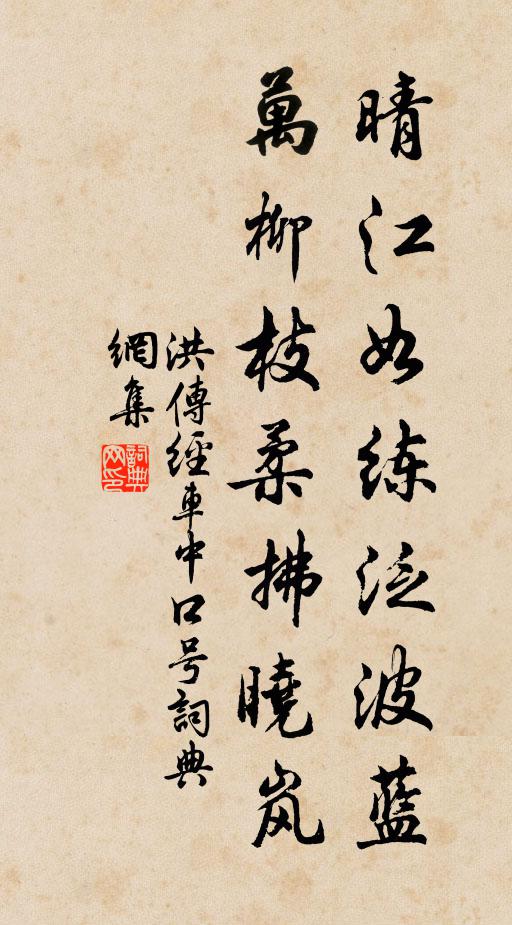 晴江如练泛波蓝
萬柳枝柔拂曉岚
洪傳經車中口号詞典
網集
詞典網印